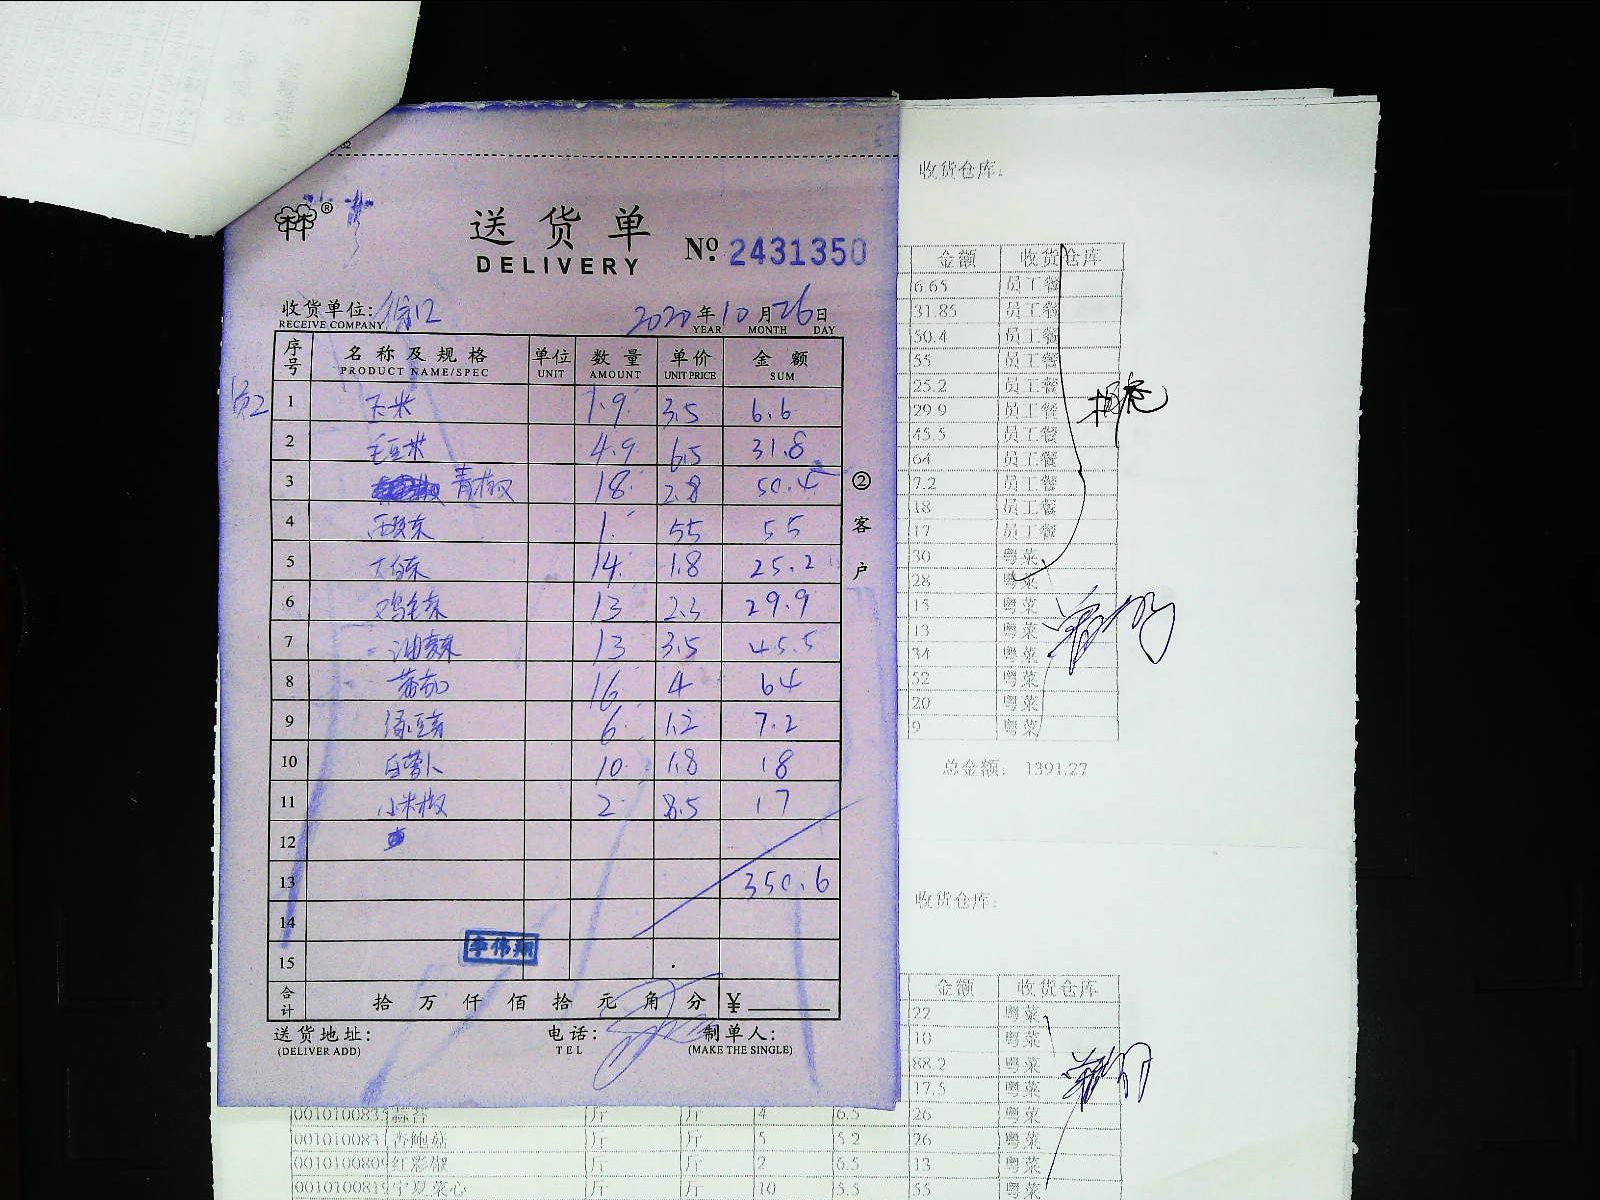 送货单
DELIVERY
№ 2431350
收货单位:
RECEIVE COMPANY
2020年10月26日
YEAR MONTH DAY
序号 名称及规格 单位 数量 单价 金额
PRODUCT NAME/SPEC UNIT AMOUNT UNIT PRICE SUM
1 玉米 1.9 3.5 6.6
2 毛豆米 4.9 6.5 31.8
3 青椒 18 2.8 50.4
4 西芹 1 55 55
5 大白菜 14 1.8 25.2
6 鸡毛菜 13 2.3 29.9
7 油麦菜 13 3.5 45.5
8 蕃茄 16 4 64
9 绿豆芽 6 1.2 7.2
10 白萝卜 10 1.8 18
11 小米椒 2 8.5 17
12
13 350.6
14
15
李伟翔
合计 拾万仟佰拾元角分 ¥
送货地址: 电话: 制单人:
(DELIVER ADD) TEL (MAKE THE SINGLE)
②客户
收货仓库:
金额 收货仓库
6.65 员工餐
31.85 员工餐
50.4 员工餐
55 员工餐
25.2 员工餐
29.9 员工餐
45.5 员工餐
64 员工餐
7.2 员工餐
18 员工餐
17 员工餐
30 粤菜
28 粤菜
15 粤菜
13 粤菜
34 粤菜
52 粤菜
20 粤菜
9 粤菜
总金额: 1391.27
收货仓库:
金额 收货仓库
22 粤菜
10 粤菜
88.2 粤菜
17.5 粤菜
0010100835 蒜苔 斤 斤 4 6.5 26 粤菜
0010100831 杏鲍菇 斤 斤 5 5.2 26 粤菜
0010100809 红彩椒 斤 斤 2 6.5 13 粤菜
0010100819 宁夏菜心 斤 斤 10 5.5 55 粤菜